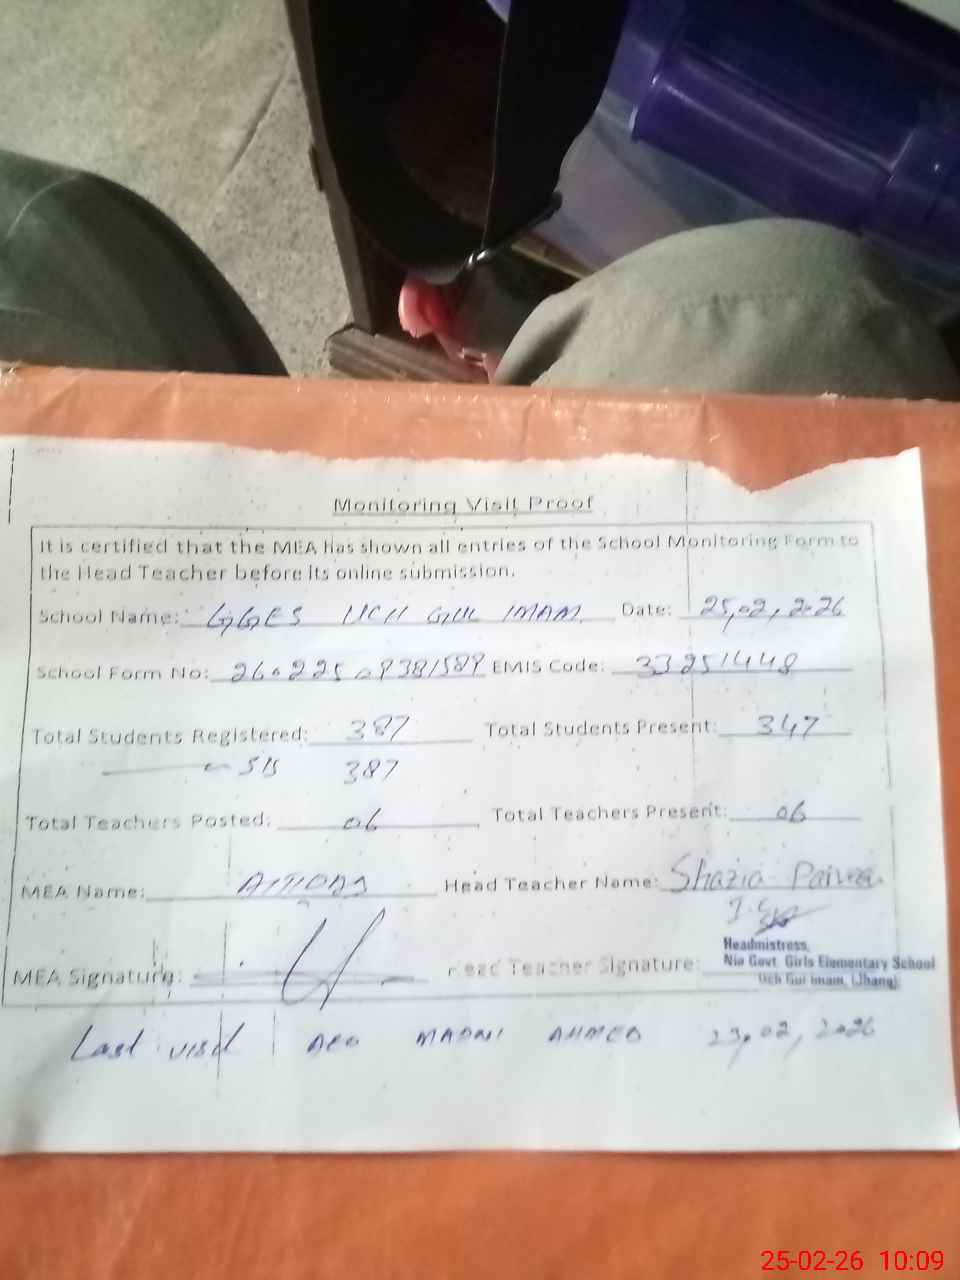 Monitoring Visit Proof
It is certified that the MEA has shown all entries of the School Monitoring Form to
the Head Teacher before its online submission.
School Name: GGES UCH GUL IMAM Date: 25,02,2026
School Form No: EMIS Code: 33251448
Total Students Registered: 387 Total Students Present: 347
SIS 387
Total Teachers Posted: 06 Total Teachers Present: 06
MEA Name: Head Teacher Name: Shazia
Headmistress,
MEA Signature: Head Teacher Signature: Govt. Girls Elementary School
Uch Gul Imam (Jhang)
Last visit AEO MADNI AHMED 23,02,2026
25-02-26 10:09